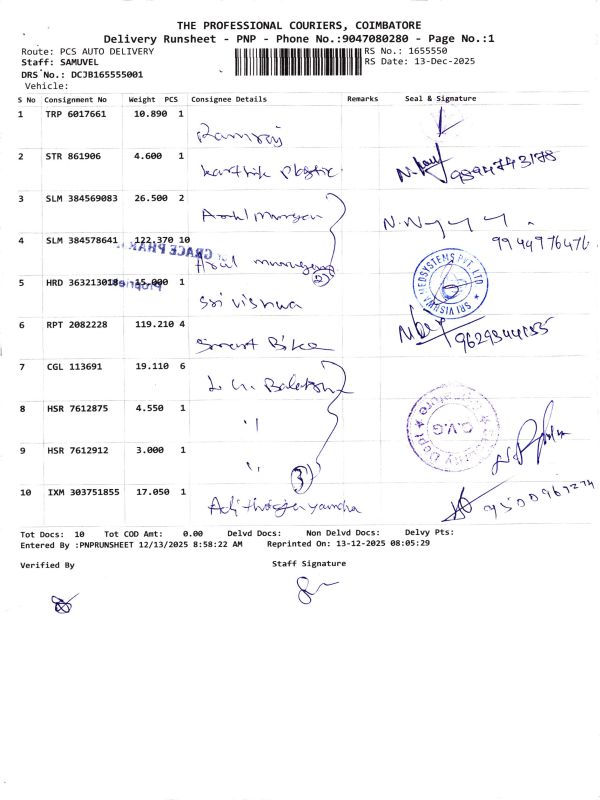 THE PROFESSIONAL COURIERS, COIMBATORE
Delivery Runsheet - PNP - Phone No.:9047080280 - Page No.:1
Route: PCS AUTO DELIVERY RS No.: 1655550
Staff: SAMUVEL RS Date: 13-Dec-2025
DRS No.: DCJB165555001
Vehicle:
S No Consignment No Weight PCS Consignee Details Remarks Seal & Signature
1 TRP 6017661 10.890 1
Ramraj
2 STR 861906 4.600 1
Karthik Plastic
3 SLM 384569083 26.500 2
Arul murugan
4 SLM 384578641 122.370 10
Arul murugan
2
9944976476
5 HRD 363213018 15.000 1
Sri vishwa
6 RPT 2082228 119.210 4
Smart Bike
7 CGL 113691 19.110 6
8 HSR 7612875 4.550 1
"
9 HSR 7612912 3.000 1
"
3
G.V.G
10 IXM 303751855 17.050 1
Tot Docs: 10 Tot COD Amt: 0.00 Delvd Docs: Non Delvd Docs: Delvy Pts:
Entered By :PNPRUNSHEET 12/13/2025 8:58:22 AM Reprinted On: 13-12-2025 08:05:29
Verified By Staff Signature